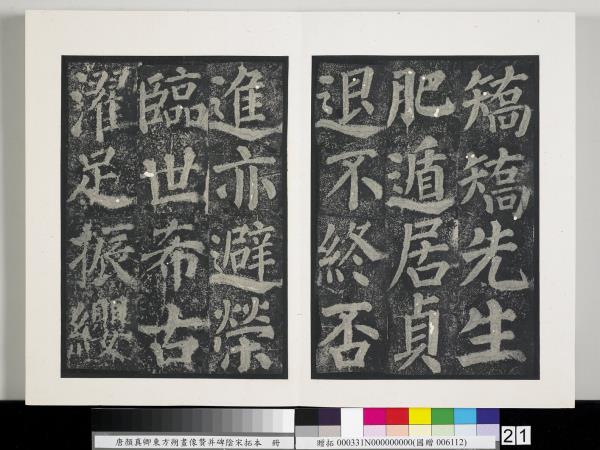 矯矯先生
肥遁居貞
退不終否
進亦避榮
臨世希古
濯足振纓
唐顏真卿東方朔畫像贊并碑陰宋拓本　冊
贈拓 000331N000000000(國贈 006112)
21